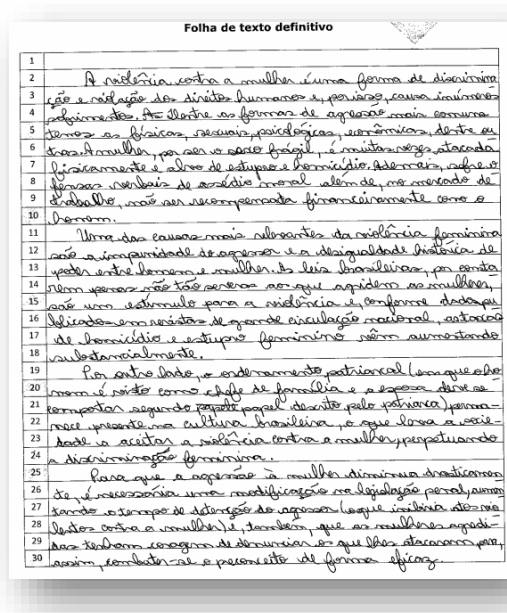 Folha de texto definitivo
1
2 A violência contra a mulher é uma forma de discrimina
3 ção e violação dos direitos humanos e, por isso, causa inúmeros
4 sofrimentos. Dentre as formas de agressão mais comuns
5 temos as físicas, sexuais, psicológicas, econômicas, dentre ou
6 tras. A mulher, por ser o sexo frágil, é muitas vezes atacada
7 fisicamente e alvo de estupro e homicídio. Ademais, sofre o
8 fensas verbais de assédio moral além de, no mercado de
9 trabalho, não ser recompensada financeiramente como o
10 homem.
11 Uma das causas mais relevantes da violência feminina
12 são a impunidade do agressor e a desigualdade histórica de
13 poder entre homem e mulher. As leis brasileiras, por conta
14 rem penas não tão severas aos que agridem as mulheres,
15 são um estímulo para a violência e, conforme dados pu
16 blicados em revistas de grande circulação nacional, as taxas
17 de homicídio e estupro feminino vêm aumentando
18 substancialmente.
19 Por outro lado, o ordenamento patriarcal (em que o ho
20 mem é visto como chefe de família e a esposa deve se
21 comportar segundo papel descrito pelo patriarca) perma-
22 nece presente na cultura brasileira, o que leva a socie-
23 dade a aceitar a violência contra a mulher, perpetuando
24 a discriminação feminina.
25 Para que a agressão à mulher diminua drasticamen
26 te, é necessária uma modificação na legislação penal, aumen
27 tando o tempo de detenção do agressor (o que inibiria atos vio
28 lentos contra a mulher) e, também, que as mulheres agredi-
29 das tenham coragem de denunciar o que lhes atacaram para,
30 assim, combater-se o preconceito de forma eficaz.